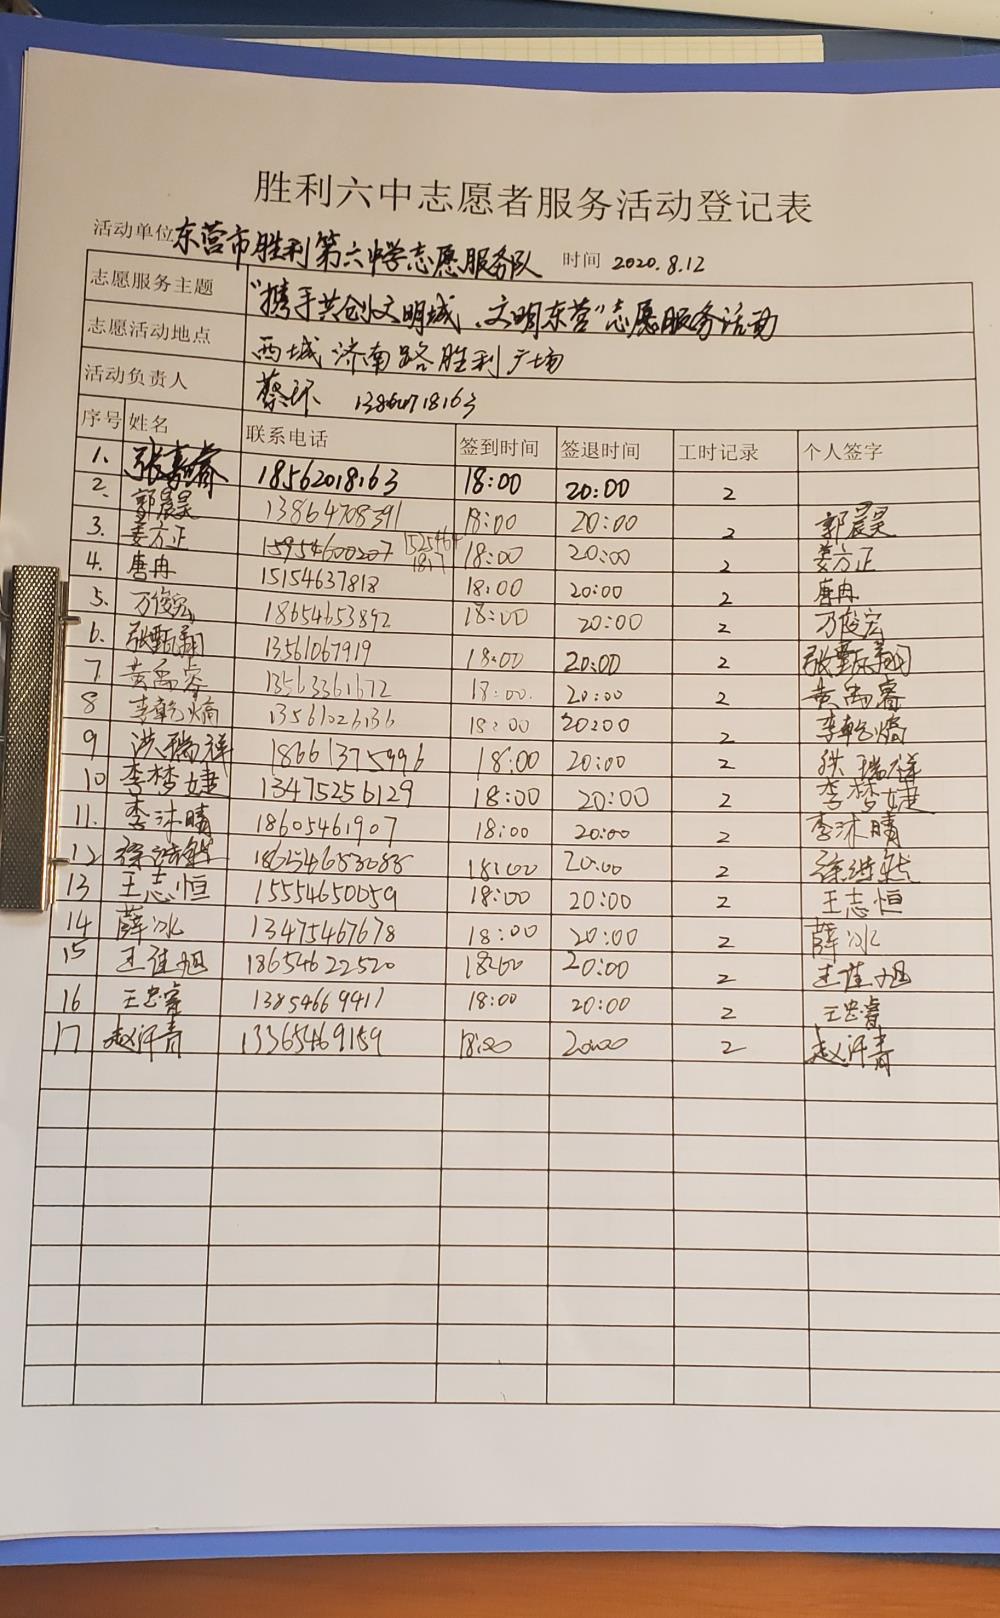 胜利六中志愿者服务活动登记表
活动单位 东营市胜利第六中学志愿服务队 时间 2020.8.12
志愿服务主题 "携手共创文明城、文明东营"志愿服务活动
志愿活动地点 西城济南路胜利广场
活动负责人 蔡环
序号 姓名 联系电话 签到时间 签退时间 工时记录 个人签字
1. 张嘉睿 18562018163 18:00 20:00 2
2. 郭晨昊 13864708391 18:00 20:00 2 郭晨昊
3. 姜方正 15954600207 18:00 20:00 2 姜方正
4. 唐冉 15154637818 18:00 20:00 2 唐冉
5. 万俊宏 18654653892 18:00 20:00 2 万俊宏
6. 13561067919 18:00 20:00 2
7. 黄禹睿 13563361672 18:00. 20:00 2 黄禹睿
8 李乾熵 18:00 20:00 2 李乾熵
9 洪瑞祥 18661375996 18:00 20:00 2 洪瑞祥
10 李梦婕 13475256129 18:00 20:00 2 李梦婕
11. 李沐晴 18605461907 18:00 20:00 2 李沐晴
12 18:00 20:00 2
13 王志恒 15554650059 18:00 20:00 2 王志恒
14 薛冰 13475467678 18:00 20:00 2 薛冰
15 18654622520 18:00 20:00 2
16 王忠睿 13854669417 18:00 20:00 2 王忠睿
17 赵汗青 13365469159 18:00 20:00 2 赵汗青